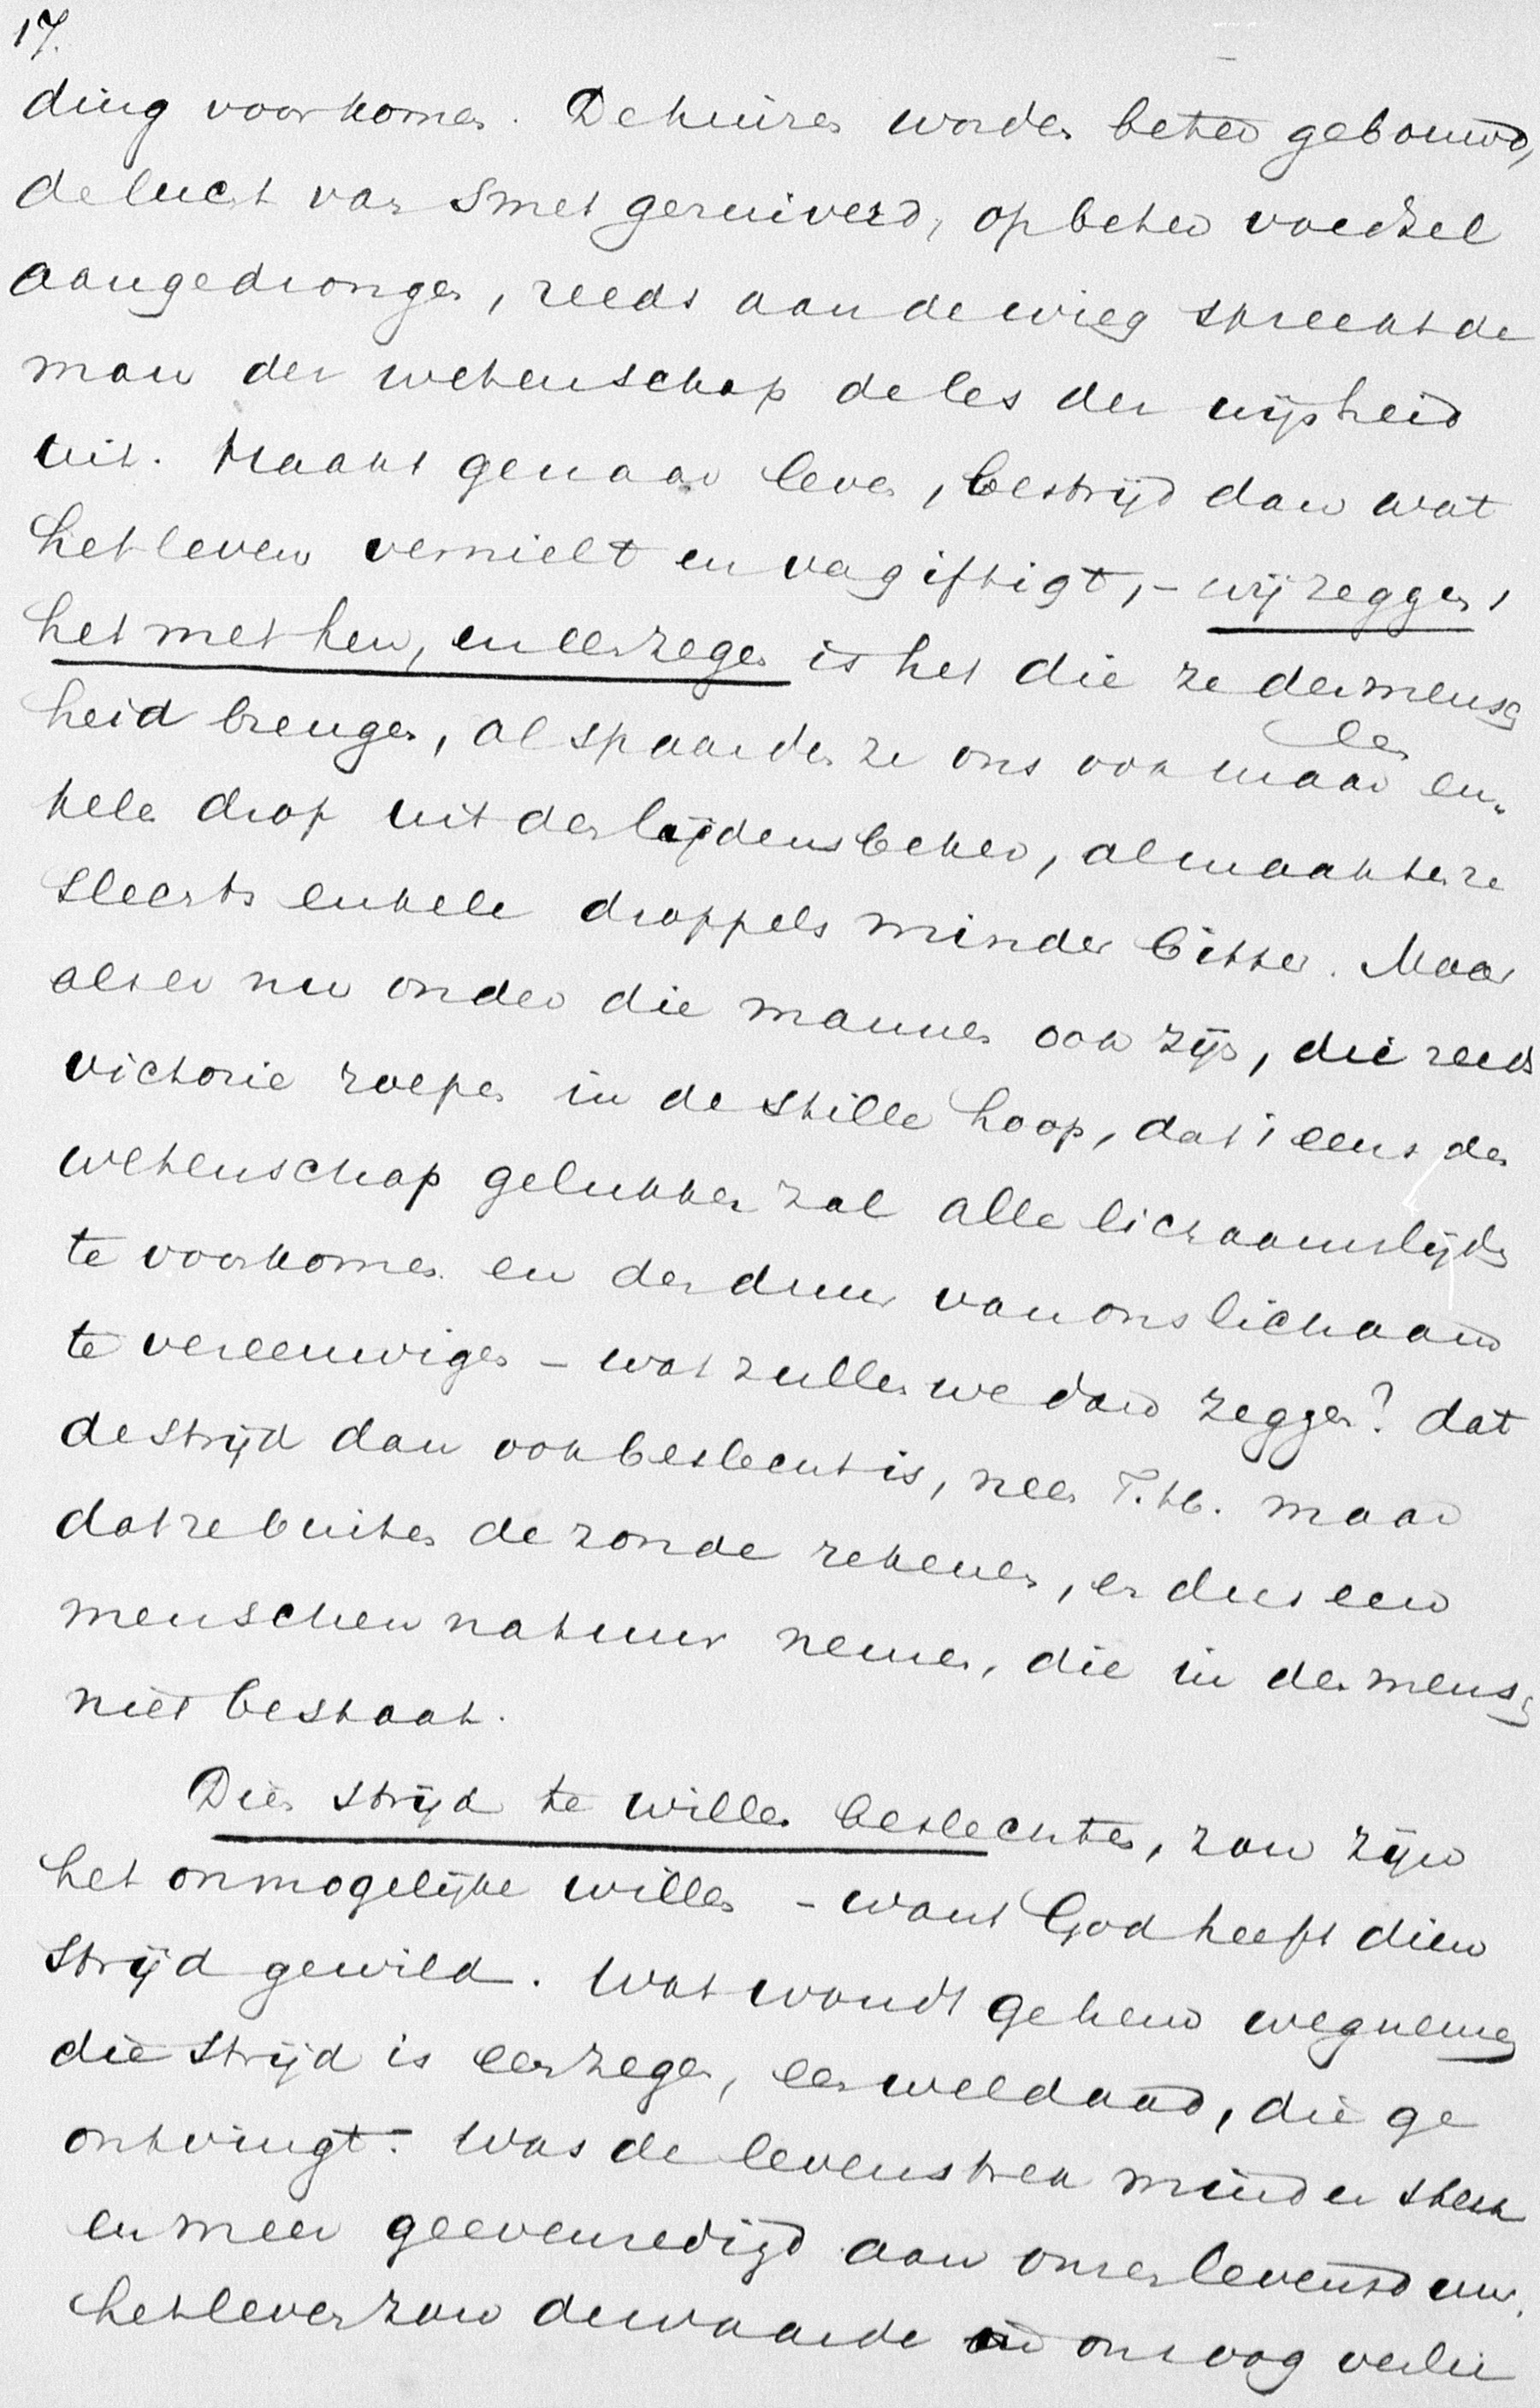 17.
ding voorkomen. De huizen worden beter gebouwd,
de lucht van smet gezuiverd, op beter voedsel
aangedrongen, reeds aan de wieg spreekt de
man der wetenschap de les der wijsheid
uit. Haakt ge naar leven, bestrijd dan wat
het leven vernielt en vergiftigt, - wij zeggen 't
het met hen, en een zegen is het die ze der mensch
heid brengen, al spaarden ze ons ook maar een
kelen drop uit den lijdensbeker, al maakten ze
slechts enkele droppels minder bitter. Maar
als er nu onder die mannen ook zijn, die reeds
victorie roepen in de stille hoop, dat 't eens der
wetenschap gelukken zal alle lichaamslijden
te voorkomen en den duur van ons lichaam
te vereeuwigen - wat zullen we dan zeggen? dat
de strijd dan ook beslecht is, neen T.H. maar
dat ze buiten de zonde rekenen, en dus een
menschennatuur nemen, die in den mensch
niet bestaat.
Dien strijd te willen beslechten, zou zijn
het onmogelijke willen - want God heeft dien
strijd gewild. Wat wondt ge hem wegnemen
die strijd is een zegen, een weldaad, die ge
ontvingt. Was de levenstrek minder sterk
en meer geevenredigd aan onzen levensduur,
het leven zou de waarde in ons oog verlie